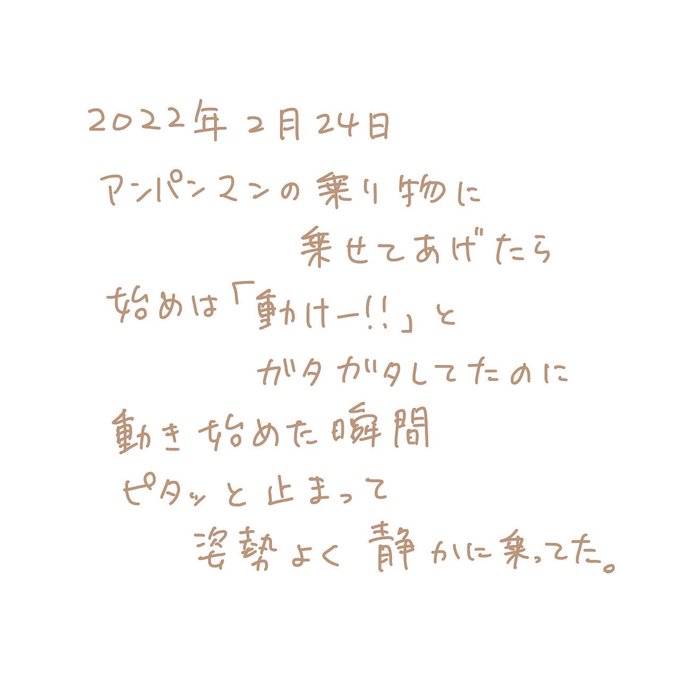 2022年2月24日
アンパンマンの乗り物に
乗せてあげたら
始めは「動けー!!」と
ガタガタしてたのに
動き始めた瞬間
ピタッと止まって
姿勢よく静かに乗ってた。